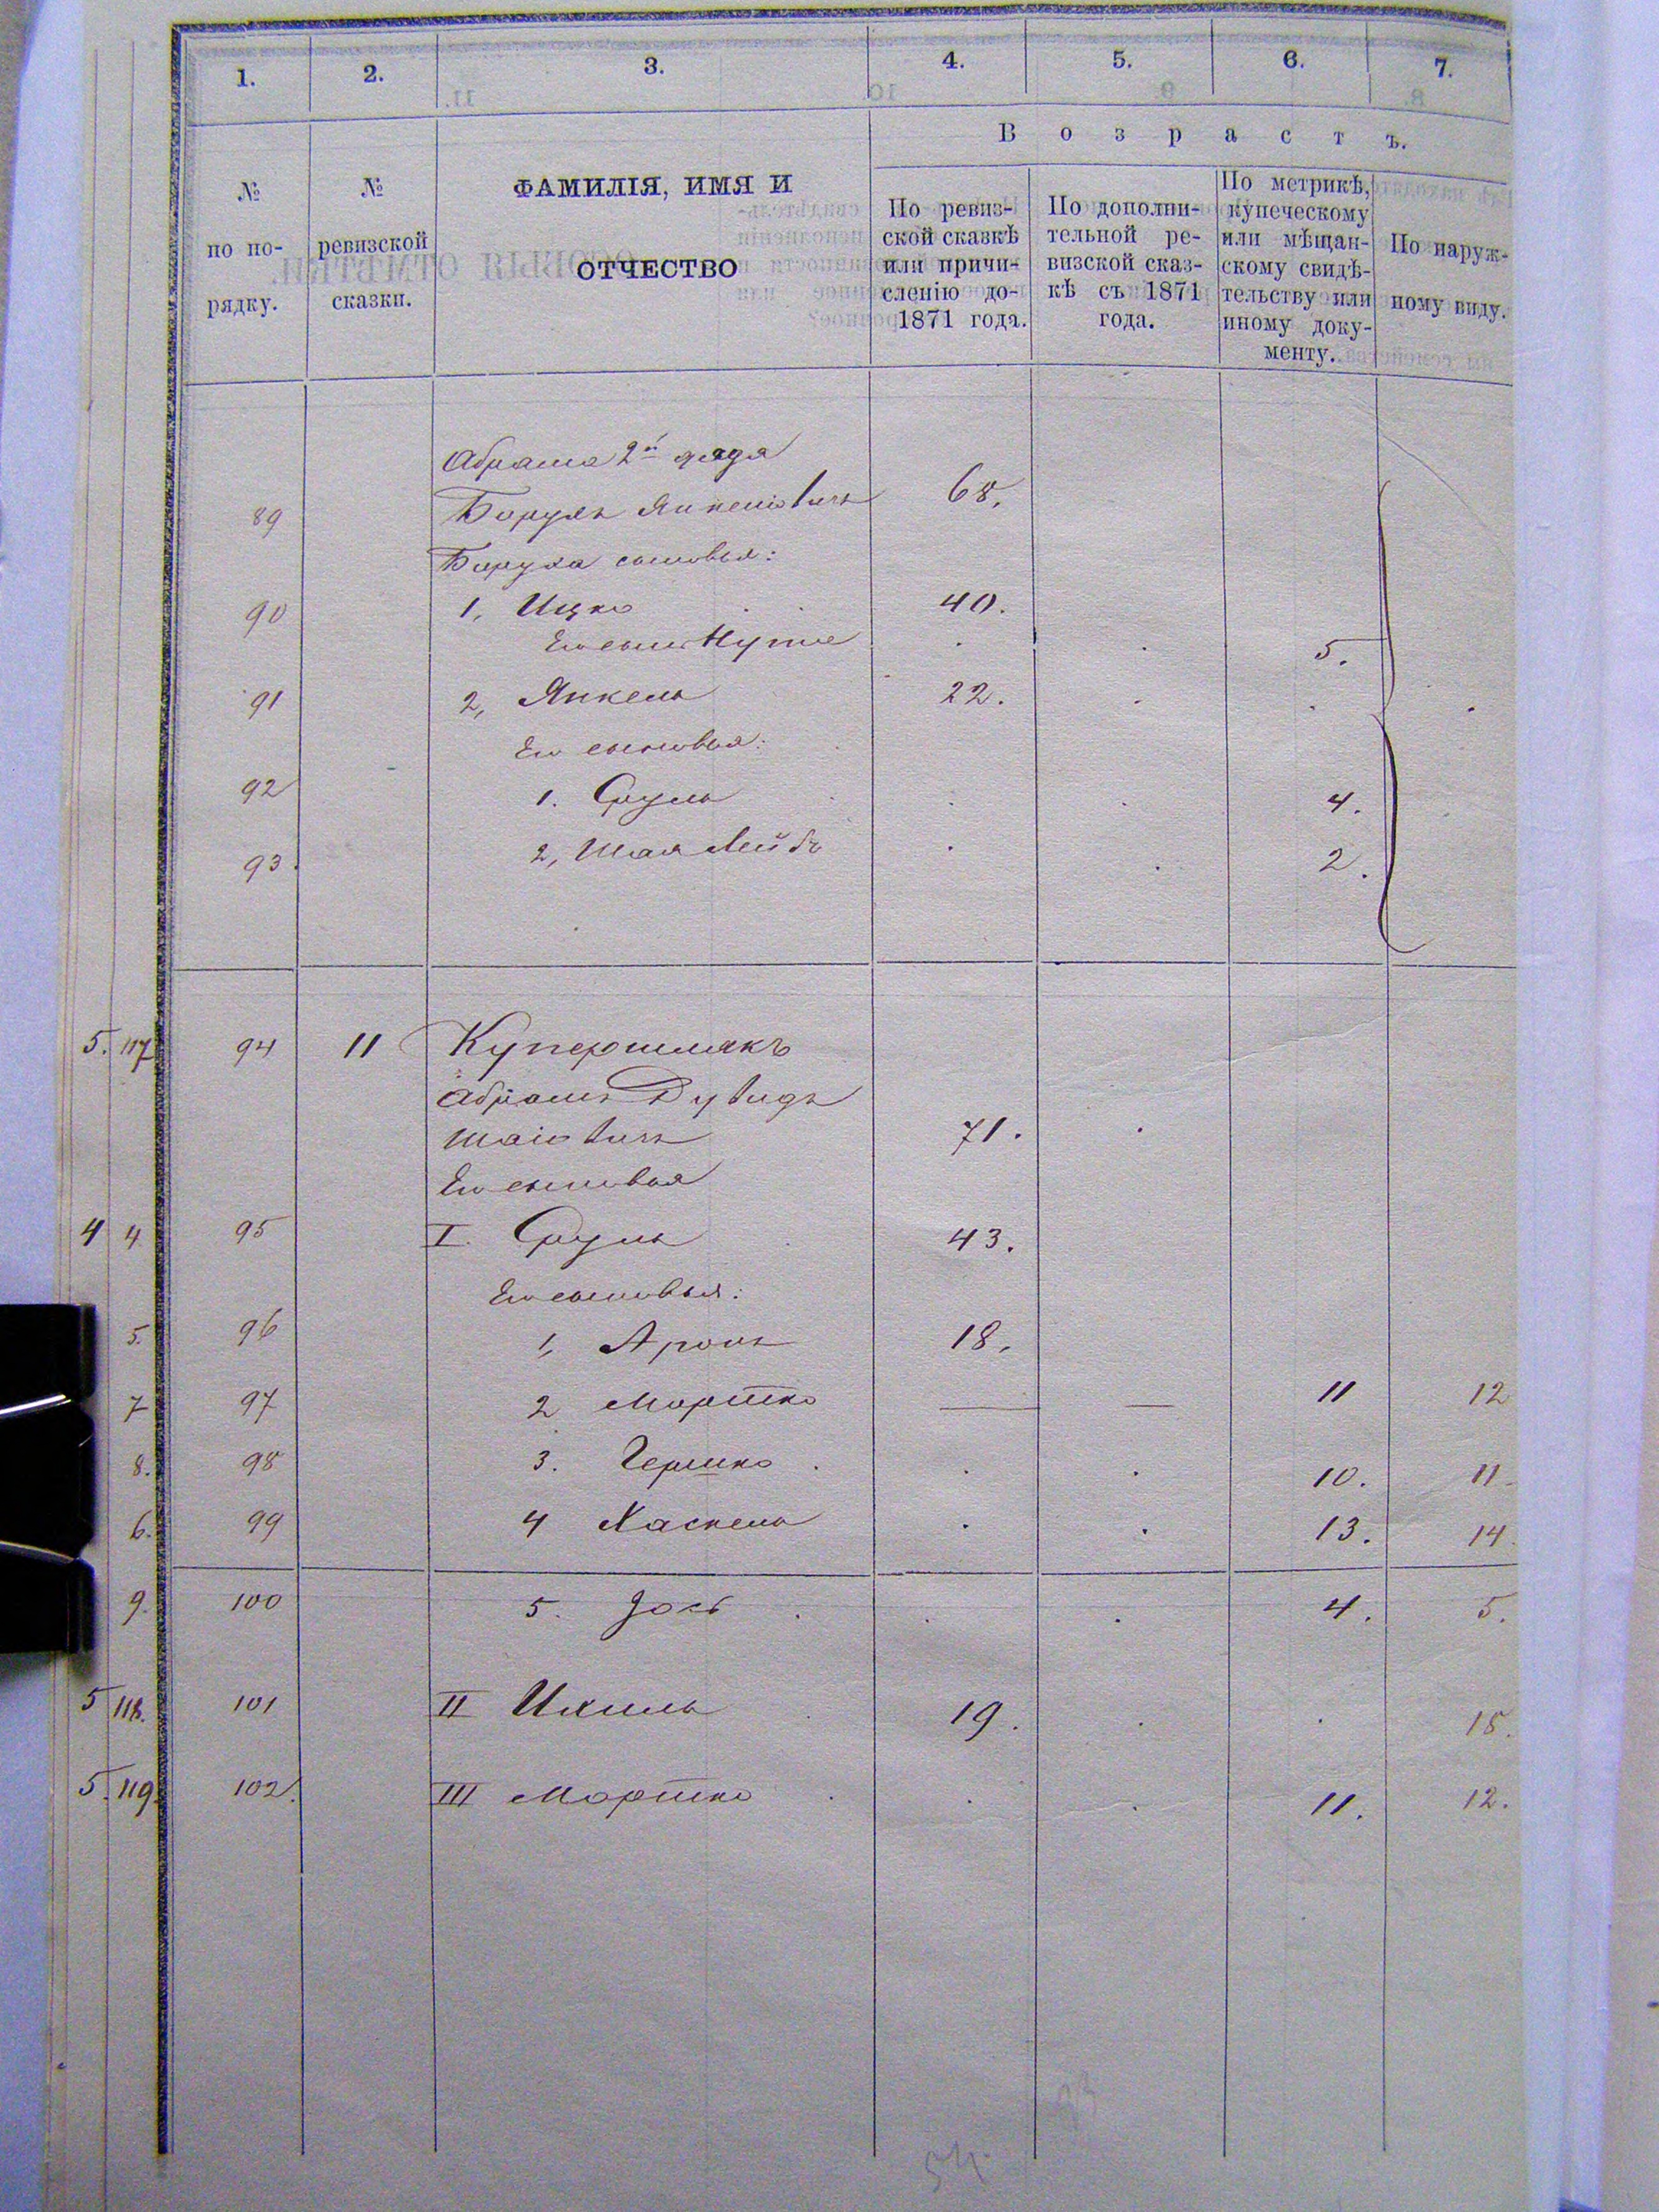 1. 2. 3. 4. 5. 6. 7.
В о з р а с т ъ.
№ по по-рядку.
№ ревизской сказки.
ФАМИЛІЯ, ИМЯ И
ОТЧЕСТВО
По ревиз-
ской сказкѣ
или причи-
сленію до-
1871 года.
По дополни-
тельной ре-
визской сказ-
кѣ съ 1871
года.
По метрикѣ,
купеческому
или мѣщан-
скому свидѣ-
тельству или
иному доку-
менту.
По наруж-
ному виду.
Абрама 2й дядя
89 Борухъ Янкеліовичъ 68.
Боруха сыновья:
90 1, Ицко 40.
Его сынъ 5.
91 2, Янкель 22.
Его сыновья:
92 1. Сруль 4.
93. 2, Шая Лейбъ 2.
5. 117 94 11 Купершмакъ
Абрамъ Дувидъ
Шаіовичъ 71.
Его сыновья
4 4 95 I. Сруль 43.
Его сыновья:
5. 96 1, Аронъ 18.
7 97 2 Мортко — — 11 12
8. 98 3. Гершко 10. 11
6. 99 4 Хаскель 13. 14.
9. 100 5. Іось 4. 5.
5 118. 101 II Ихиль 19. 18.
5. 119. 102. III Мортко 11. 12.